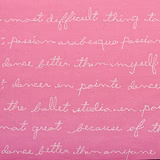 most difficult thing to
passion arabesque passion
dance better than myself
dancer en pointe dance
the ballet studio en po
not great because of t
dance better than